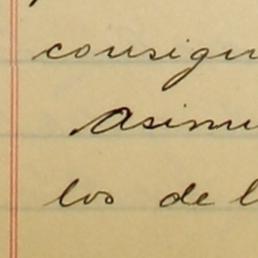 consigu
Asimi
los de l